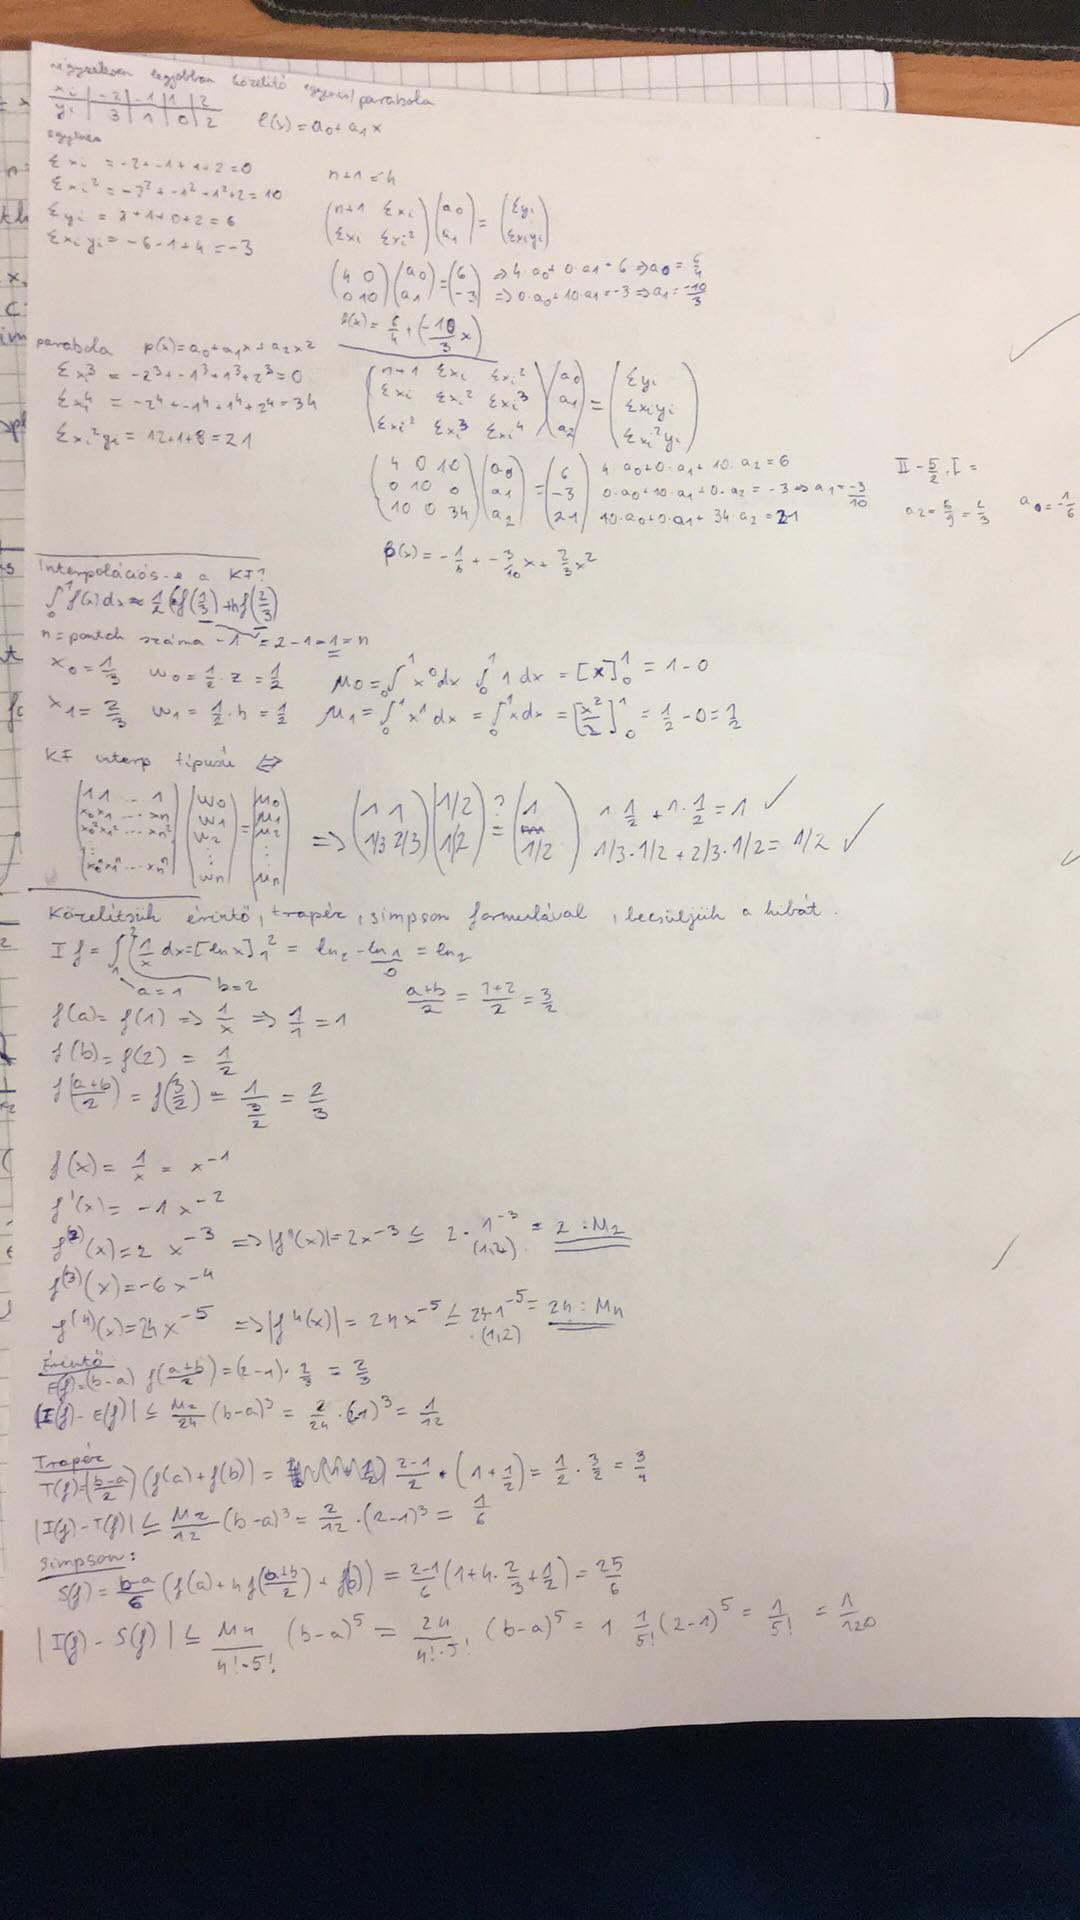 négyzetesen legjobban közelítő egyenes/parabola
xi | -2 | -1 | 1 | 2
yi | 3 | 1 | 0 | 2
l(x) = a0 + a1x
egyenes
Σxi = -2+-1+1+2=0
n+1=4
Σxi² = -2²+-1²+1²+2=10
Σyi = 3+1+0+2=6
Σxiyi = -6-1+4=-3
(n+1 Σxi) (a0) = (Σyi)
(Σxi Σxi²) (a1) (Σxiyi)
(4 0) (a0) = (6) ⇒ 4·a0+0·a1=6 ⇒ a0 = 6/4
(0 10) (a1) (-3) ⇒ 0·a0+10·a1=-3 ⇒ a1 = -10/3
l(x) = 6/4 + (-10/3 x)
parabola p(x)=a0+a1x+a2x²
Σxi³ = -2³+-1³+1³+2³=0
Σxi⁴ = -2⁴+-1⁴+1⁴+2⁴=34
Σxi²yi = 12+1+8=21
(n+1 Σxi Σxi²) (a0) = (Σyi)
(Σxi Σxi² Σxi³) (a1) (Σxiyi)
(Σxi² Σxi³ Σxi⁴) (a2) (Σxi²yi)
(4 0 10) (a0) = (6) 4·a0+0·a1+10·a2=6
(0 10 0) (a1) (-3) 0·a0+10·a1+0·a2=-3 ⇒ a1=-3/10
(10 0 34) (a2) (21) 10·a0+0·a1+34·a2=21
II - 5/2·I =
a2 = 6/9 = 2/3 a0 = -1/6
p(x) = -1/6 + -3/10 x + 2/3 x²
Interpolációs-e a KF?
∫₀¹ f(x)dx ≈ 1/2 (f(1/3) + 1f(2/3))
n=pontok száma -1 = 2-1=1=n
x0 = 1/3 w0 = 1/2·z = 1/2 μ0 = ∫₀¹ x⁰dx ∫₀¹ 1dx = [x]₀¹ = 1-0
x1 = 2/3 w1 = 1/2·h = 1/2 μ1 = ∫₀¹ x¹dx = ∫₀¹ xdx = [x²/2]₀¹ = 1/2 - 0 = 1/2
KF interp típusú ⇔
(1 1 ... 1) (w0) = (μ0)
(x0 x1 ... xn) (w1) (μ1)
(x0² x1² ... xn²) (w2) (μ2)
(x0ⁿ x1ⁿ ... xnⁿ) (wn) (μn)
⇒ (1 1) (1/2) ?= (1) 1·1/2 + 1·1/2 = 1 ✓
(1/3 2/3) (1/2) (1/2) 1/3·1/2 + 2/3·1/2 = 1/2 ✓
Közelítsük érintő, trapéz, simpson formulával, becsüljük a hibát.
If = ∫₁² 1/x dx = [lnx]₁² = ln2 - ln1 = ln2
0
a=1 b=2 a+b/2 = 1+2/2 = 3/2
f(a) = f(1) ⇒ 1/x ⇒ 1/1 = 1
f(b) = f(2) = 1/2
f(a+b/2) = f(3/2) = 1/(3/2) = 2/3
f(x) = 1/x = x⁻¹
f'(x) = -1x⁻²
f⁽²⁾(x) = 2 x⁻³ ⇒ |f''(x)| = 2x⁻³ ≤ 2·1⁻³ = 2 : M2
(1,2)
f⁽³⁾(x) = -6x⁻⁴
f⁽⁴⁾(x) = 24x⁻⁵ ⇒ |f⁴(x)| = 24x⁻⁵ ≤ 24·1⁻⁵ = 24 : M4
(1,2)
Érintő
E(f)=(b-a) f(a+b/2) = (2-1)·2/3 = 2/3
|I(f)-E(f)| ≤ M2/24 (b-a)³ = 2/24·(2-1)³ = 1/12
Trapéz
T(f)=(b-a/2) (f(a)+f(b)) = 2-1/2 · (1+1/2) = 1/2·3/2 = 3/4
|I(f)-T(f)| ≤ M2/12 (b-a)³ = 2/12·(2-1)³ = 1/6
Simpson:
S(f) = b-a/6 (f(a)+4f(a+b/2)+f(b)) = 2-1/6 (1+4·2/3+1/2) = 25/6
|I(f)-S(f)| ≤ M4/4!·5! (b-a)⁵ = 24/4!·5! (b-a)⁵ = 1 1/5! (2-1)⁵ = 1/5! = 1/120